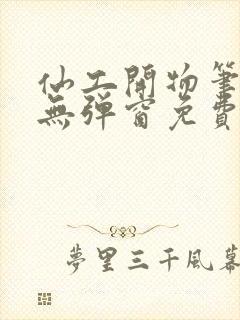 仙工開物筆
無彈窗免費
夢里三千風幕